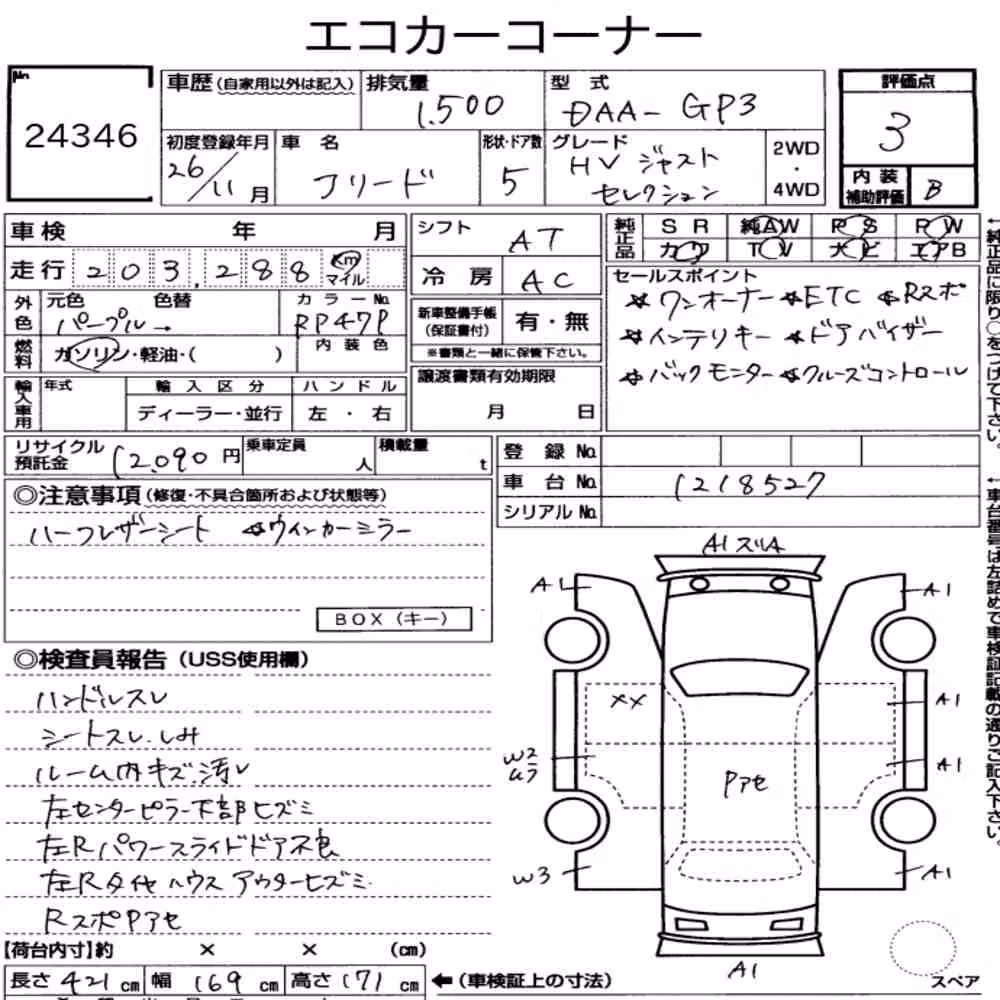 エコカーコーナー
No.
24346
車歴(自家用以外は記入) 排気量 1.500 型式 DAA-GP3
初度登録年月 26/11月 車名 フリード 形状・ドア数 5 グレード HV ジャスト セレクション 2WD・4WD
評価点 3
内装補助評価 B
車検 年 月
走行 203,288 km マイル
外色 元色 パープル→ 色替 カラーNo. RP47P
燃料 ガソリン・軽油・( ) 内装色
輸入車用 年式 輸入区分 ハンドル
ディーラー・並行 左・右
シフト AT
冷房 AC
新車整備手帳(保証書付) 有・無
※書類と一緒に保管下さい。
譲渡書類有効期限
月 日
純正品 SR 純AW PS PW
カワ TV ナビ エアB
セールスポイント
☆ワンオーナー ☆ETC ☆Rスポ
☆インテリキー ☆ドアバイザー
☆バックモニター ☆クルーズコントロール
←純正品に限り○をつけて下さい。
リサイクル預託金 12,090円 乗車定員 人 積載量 t
登録No.
車台No. 1218527
シリアルNo.
←車台番号は左詰めで車検証記載の通りご記入下さい。
◎注意事項(修復・不具合箇所および状態等)
ハーフレザーシート ☆ウィンカーミラー
BOX(キー)
◎検査員報告(USS使用欄)
ハンドルスレ
シートスレ.しみ
ルーム内キズ.汚レ
左センターピラー下部ヒズミ
左Rパワースライドドア不良
左Rタイヤハウスアウターヒズミ
RスポPアセ
A1 スリA
A1 A1
XX A1
W2 A1
Pアセ
W3 A1
A1
スペア
【荷台内寸】約 × × (cm)
長さ 421 cm 幅 169 cm 高さ 171 cm ←(車検証上の寸法)